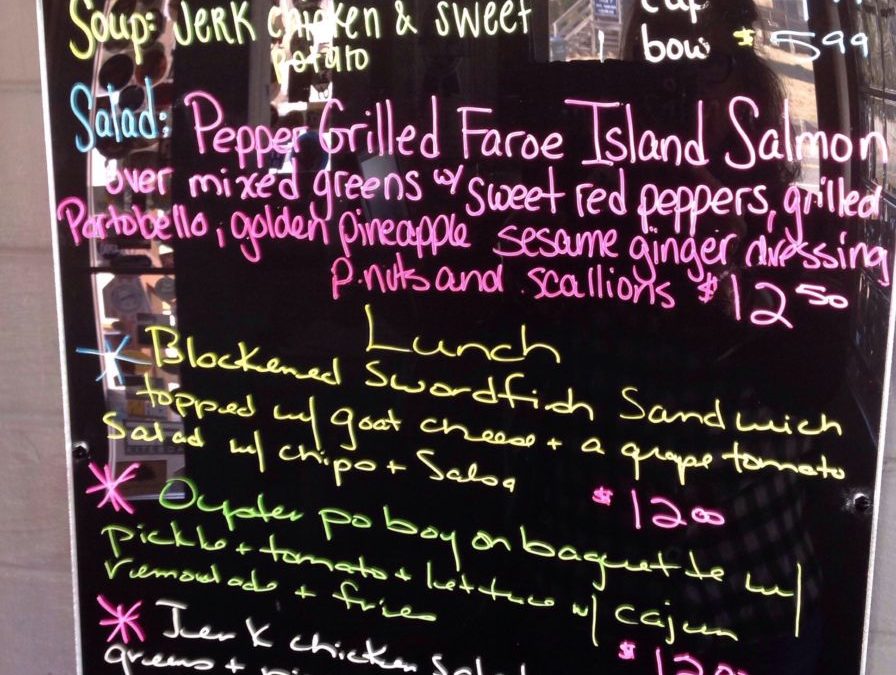 Soup: Jerk chicken & sweet
potato
cup
bowl $5.99
Salad: Pepper Grilled Faroe Island Salmon
over mixed greens w/ sweet red peppers, grilled
Portobello, golden pineapple sesame ginger dressing
P.nuts and scallions $12.50
Lunch
* Blackened Swordfish Sandwich
topped w/ goat cheese + a grape tomato
Salad w/ chips + Salsa
$12.00
* Oyster po boy on baguette w/
pickle + tomato + lettuce w/ cajun
remoulade + fries
$12.00
* Jerk chicken Salad
greens +